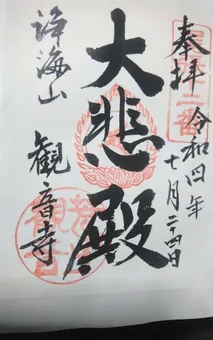 奉拝
令和四年
七月二十四日
大悲殿
浄海山
観音寺